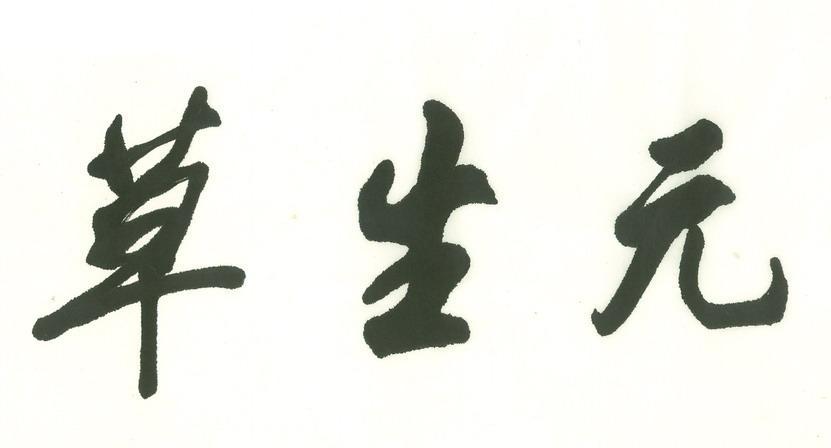 草生元